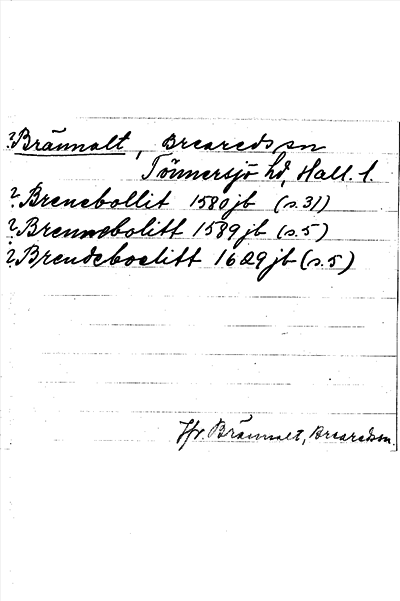 ? Brännalt, Breareds sn
Tönnersjö hd, Hall. l.
? Brenebollit 1580 jb (s. 31)
? Brennebolitt 1589 jb (s. 5)
? Brendeboelitt 1629 jb (s. 5)
Jfr. Brännalt, Breareds sn.